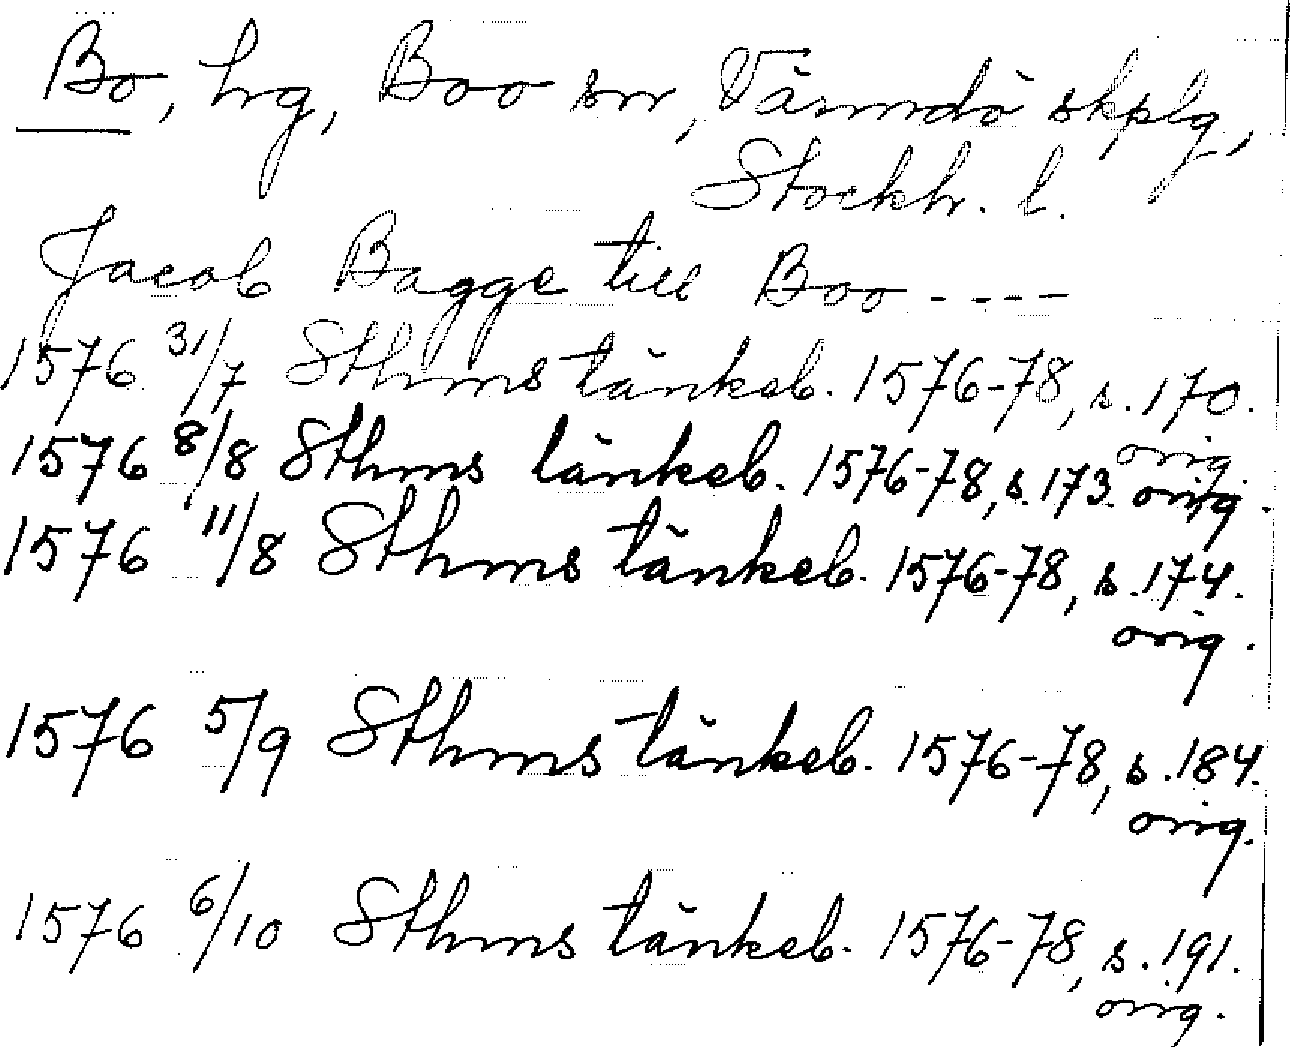 Bo, hg, Boo sn, Värmdö skplg,
Stockh. l.
Jacob Bagge till Boo ----
1576 31/7 Sthms tänkeb. 1576-78, s. 170.
orig
1576 8/8 Sthms tänkeb. 1576-78, s. 173. orig.
1576 11/8 Sthms tänkeb. 1576-78, s. 174.
orig.
1576 5/9 Sthms tänkeb. 1576-78, s. 184.
orig.
1576 6/10 Sthms tänkeb. 1576-78, s. 191.
orig.